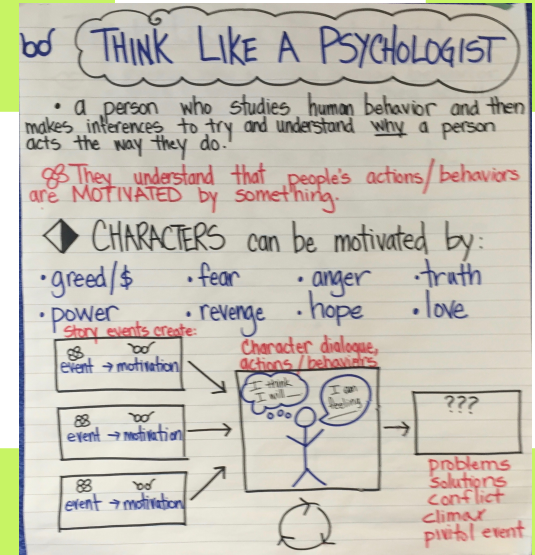 THINK LIKE A PSYCHOLOGIST
• a person who studies human behavior and then
makes inferences to try and understand why a person
acts the way they do.
They understand that people's actions/behaviors
are MOTIVATED by something.
CHARACTERS can be motivated by:
• greed/$ • fear • anger • truth
• power • revenge • hope • love
Story events create:
event → motivation
event → motivation
event → motivation
Character dialogue,
actions/behaviors
I think
I will
I am
feeling
???
problems
solutions
conflict
climax
pivitol event